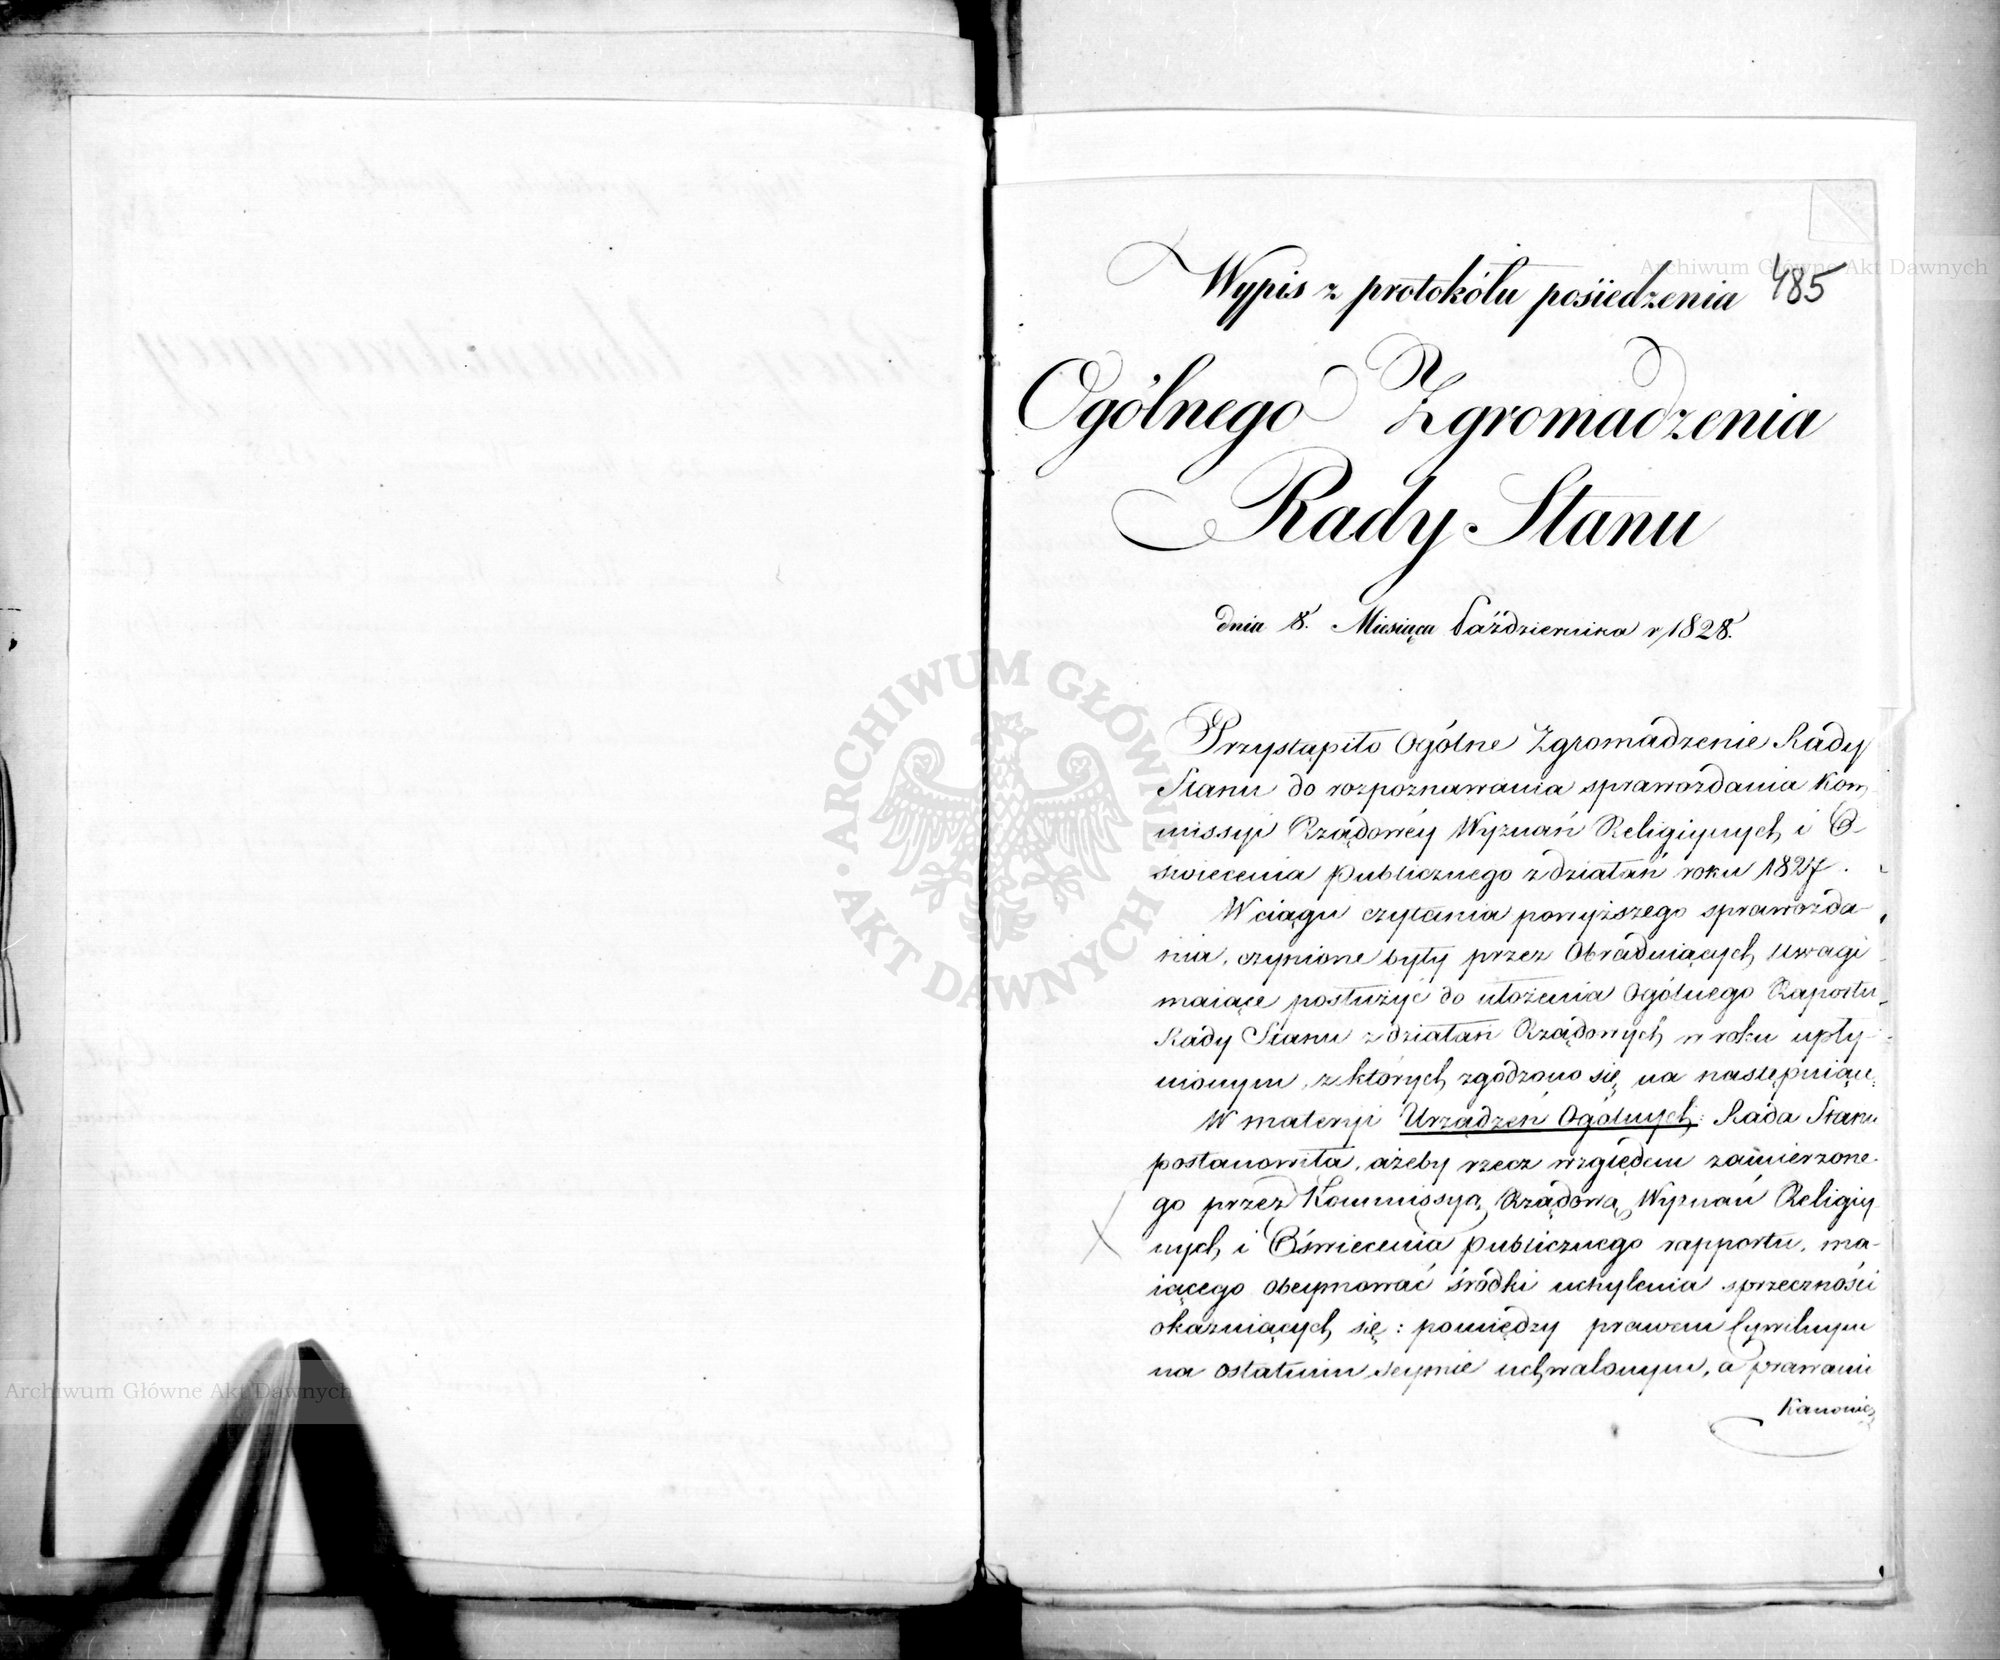 Wypis z protokółu posiedzenia 485
Ogólnego Zgromadzenia
Rady Stanu
dnia 8. Miesiąca Października r. 1828.
Przystąpiło Ogólne Zgromadzenie Rady
Stanu do rozpoznawania sprawozdania Kom-
missyi Rządowéy Wyznań Religiynych i O-
świecenia publicznego z działań roku 1827.
W ciągu czytania powyższego sprawozda-
nia, czynione były przez Obraduiących uwagi
maiące posłużyć do ułożenia Ogólnego Raportu
Rady Stanu z działań Rządowych w roku upły-
nionym, z których zgodzono się na następuiące:
W materyi Urządzeń Ogólnych: Rada Stanu
postanowiła, ażeby rzecz względem zamierzone-
go przez Kommissyą Rządową Wyznań Religiy-
nych i Oświecenia publicznego rapportu, ma-
iącego obeymować śródki uchylenia sprzeczności
okazuiących się: pomiędzy prawem Cywilnym
na ostatnim seymie uchwalonym, a prawami
Kanonicz
Archiwum Główne Akt Dawnych
Archiwum Główne Akt Dawnych
ARCHIWUM GŁÓWNE AKT DAWNYCH